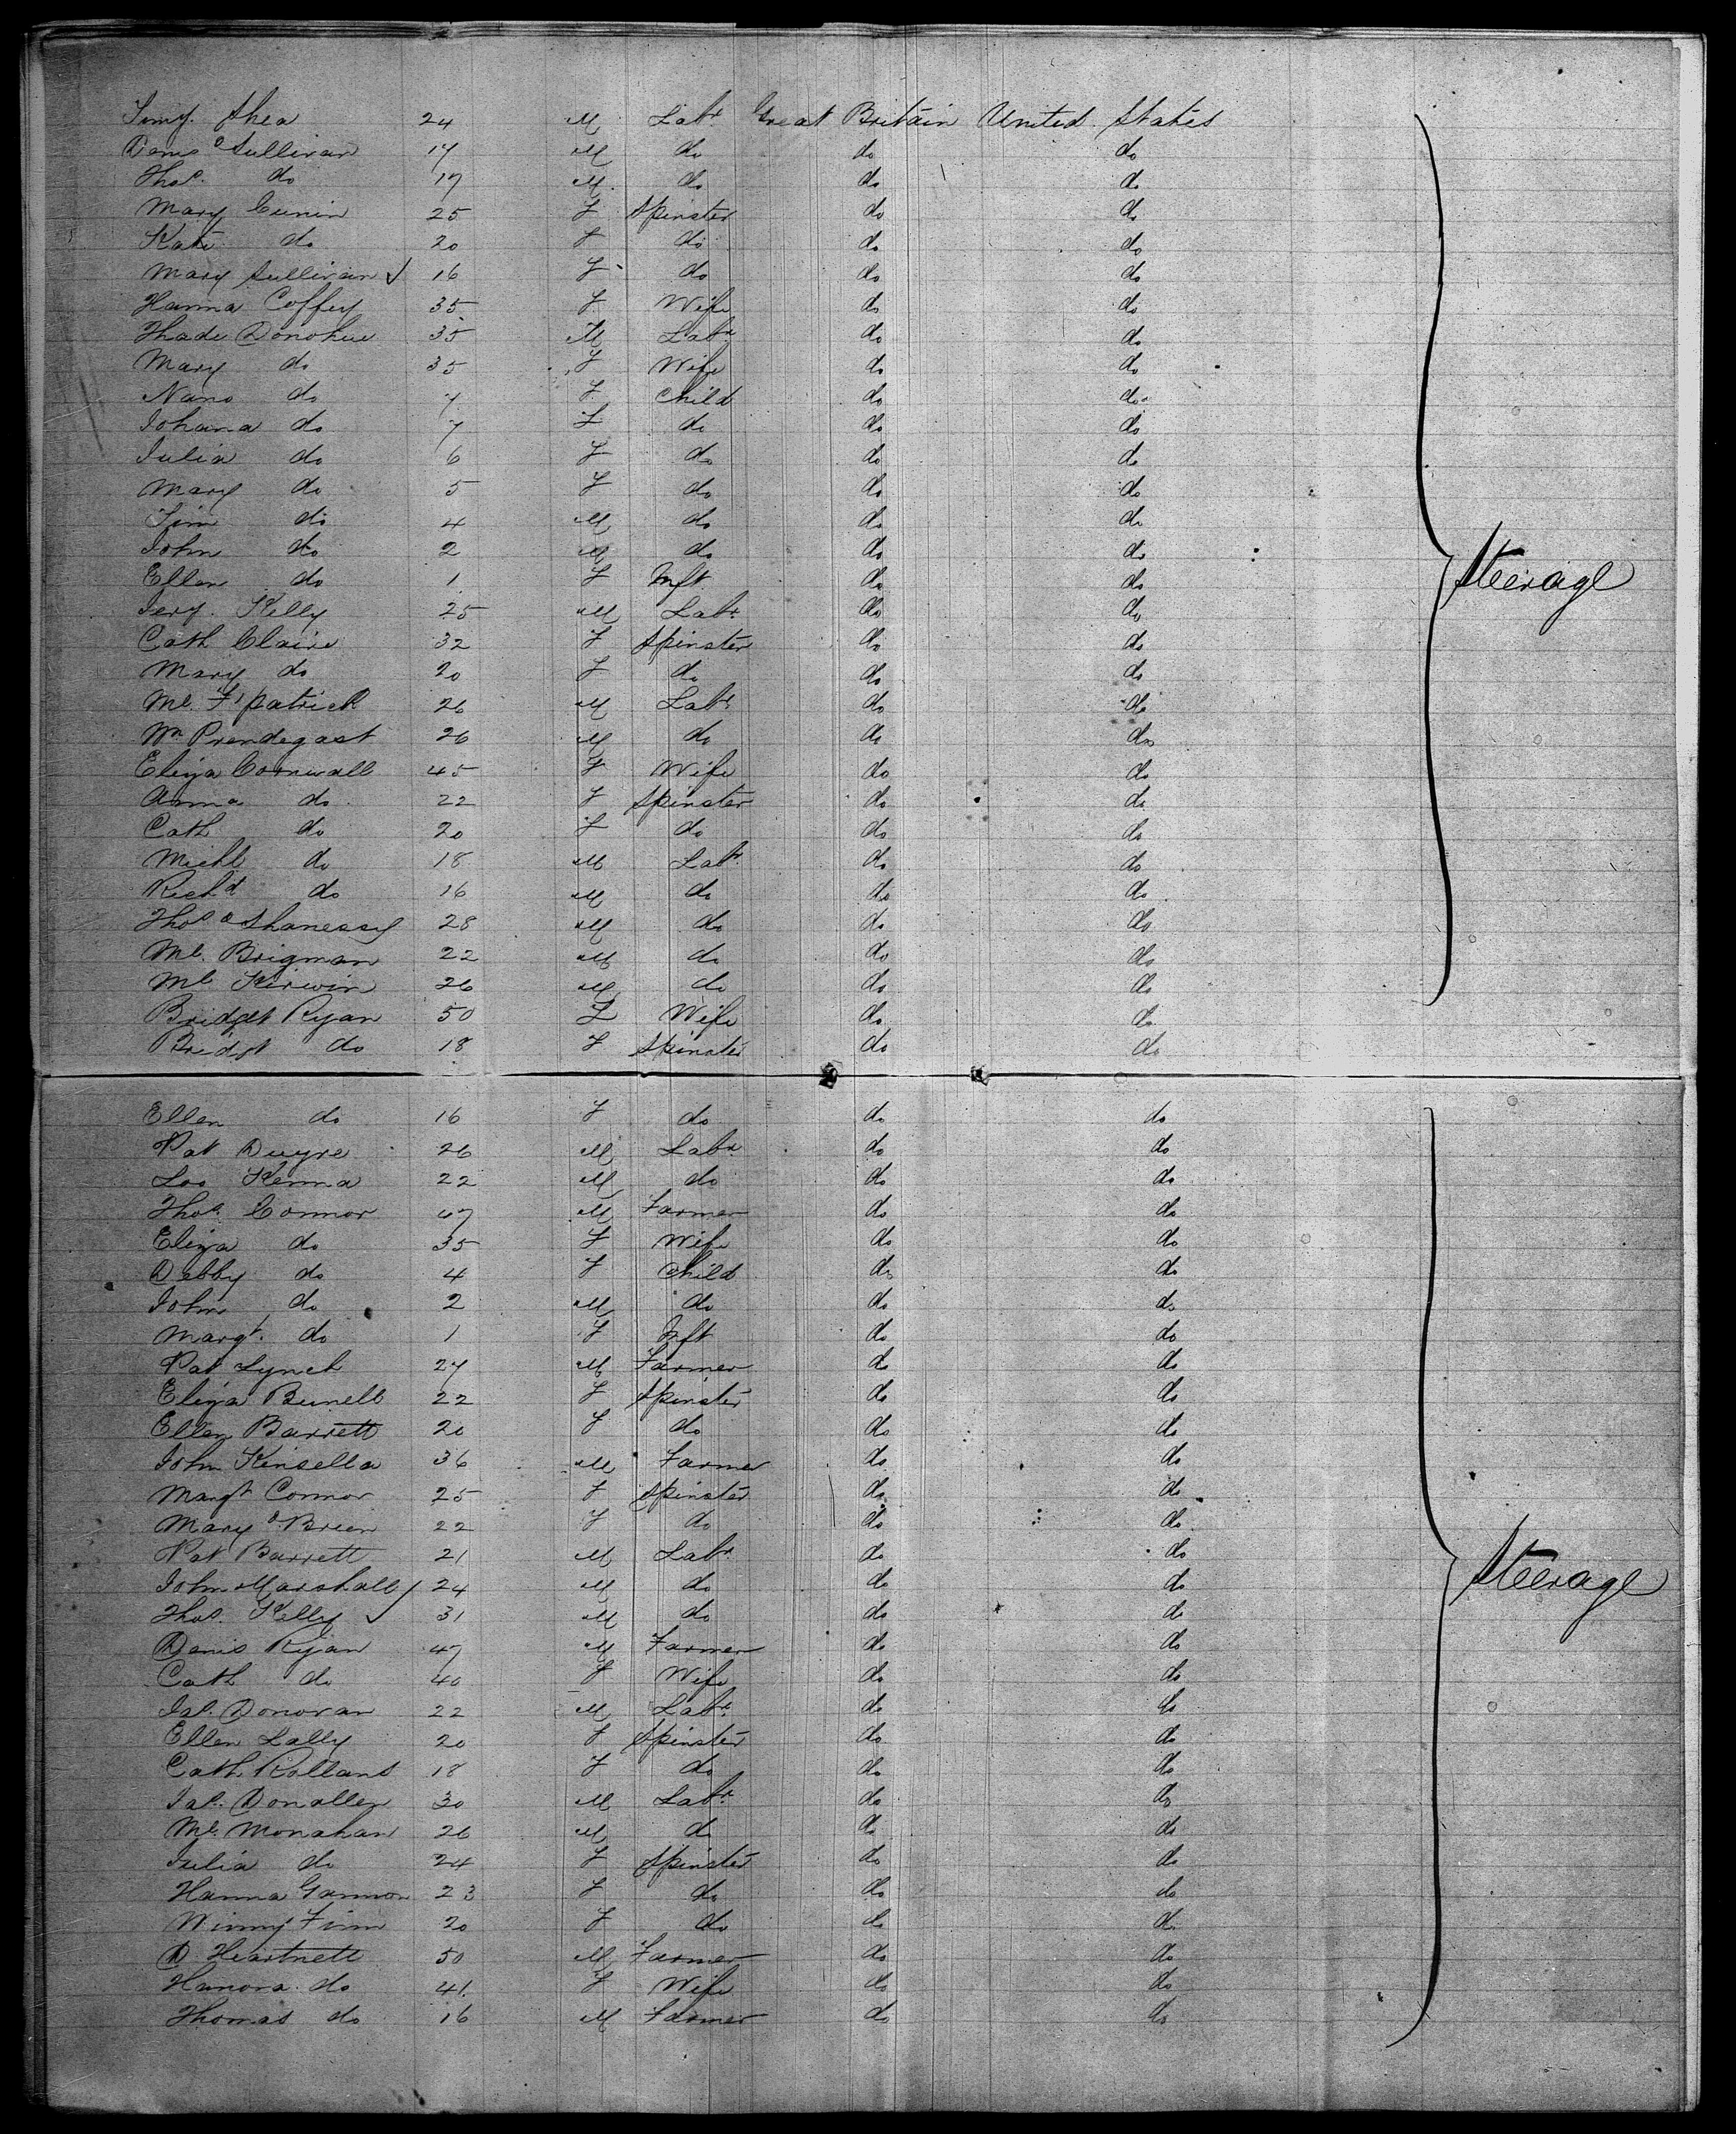 Timy. Shea 24 M Labr Great Britain United States
Denis O'Sullivan 17 M do do do
Thos. do 17 M do do do
Mary Cunin 25 F Spinster do do
Kate do 20 F do do do
Mary Sullivan ✓ 16 F do do do
Hanna Coffey 35 F Wife do do
Thade Donohue 35 M Labr do do
Mary do 35 F Wife do do
Nano do 7 F Child do do
Johana do 7 F do do do
Julia do 6 F do do do
Mary do 5 F do do do
Tim do 4 M do do do
John do 2 M do do do
Ellen do 1 F Inft do do
Steerage
Jery. Kelly 25 M Labr. do do
Cath Claire 32 F Spinster do do
Mary do 20 F do do do
Ml. F'patrick 26 M Labr do do
Wm Prendegast 26 M do do do
Eliza Cornwall 45 F Wife do do
Anna do 22 F Spinster do do
Cath do 20 F do do do
Michl do 18 M Labr. do do
Richd do 16 M do do do
Thos O Shanessy 28 M do do do
Ml. Brigman 22 M do do do
Ml Kirwin 26 M do do do
Bridget Ryan 50 F Wife do do
Bridgt do 18 F Spinster do do
Ellen do 16 F do do do
Pat Dwyre 26 M Labr do do
Kenna 22 M do do do
Thos. Connor 47 M Farmer do do
Eliza do 35 F Wife do do
Debby do 4 F Child do do
John do 2 M do do do
Margt. do 1 F Inft do do
Pat Lynch 27 M Farmer do do
Eliza 22 F Spinster do do
Ellen Barrett 20 F do do do
John Kinsella 36 M Farmer do do
Margt Connor 25 F Spinster do do
Mary O'Brien 22 F do do do
Pat Barrett 21 M Labr. do do
John Marshall / 24 M do do do
Steerage
Thos. Kelly ✓ 31 M do do do
Denis Ryan 47 M Farmer do do
Cath do 40 F Wife do do
Jas. Donovan 22 M Labr. do do
Ellen Lally 20 F Spinster do do
Cath Rollans 18 F do do do
Jas. Donallen 30 M Labr do do
Ml. Monahan 26 M do do do
Julia do 24 F Spinster do do
Hanna Gannon 23 F do do do
Winny Finn 20 F do do do
D. Heartnett 50 M Farmer do do
Hanora do 41. F Wife do do
Thomas do 16 M Farmer do do